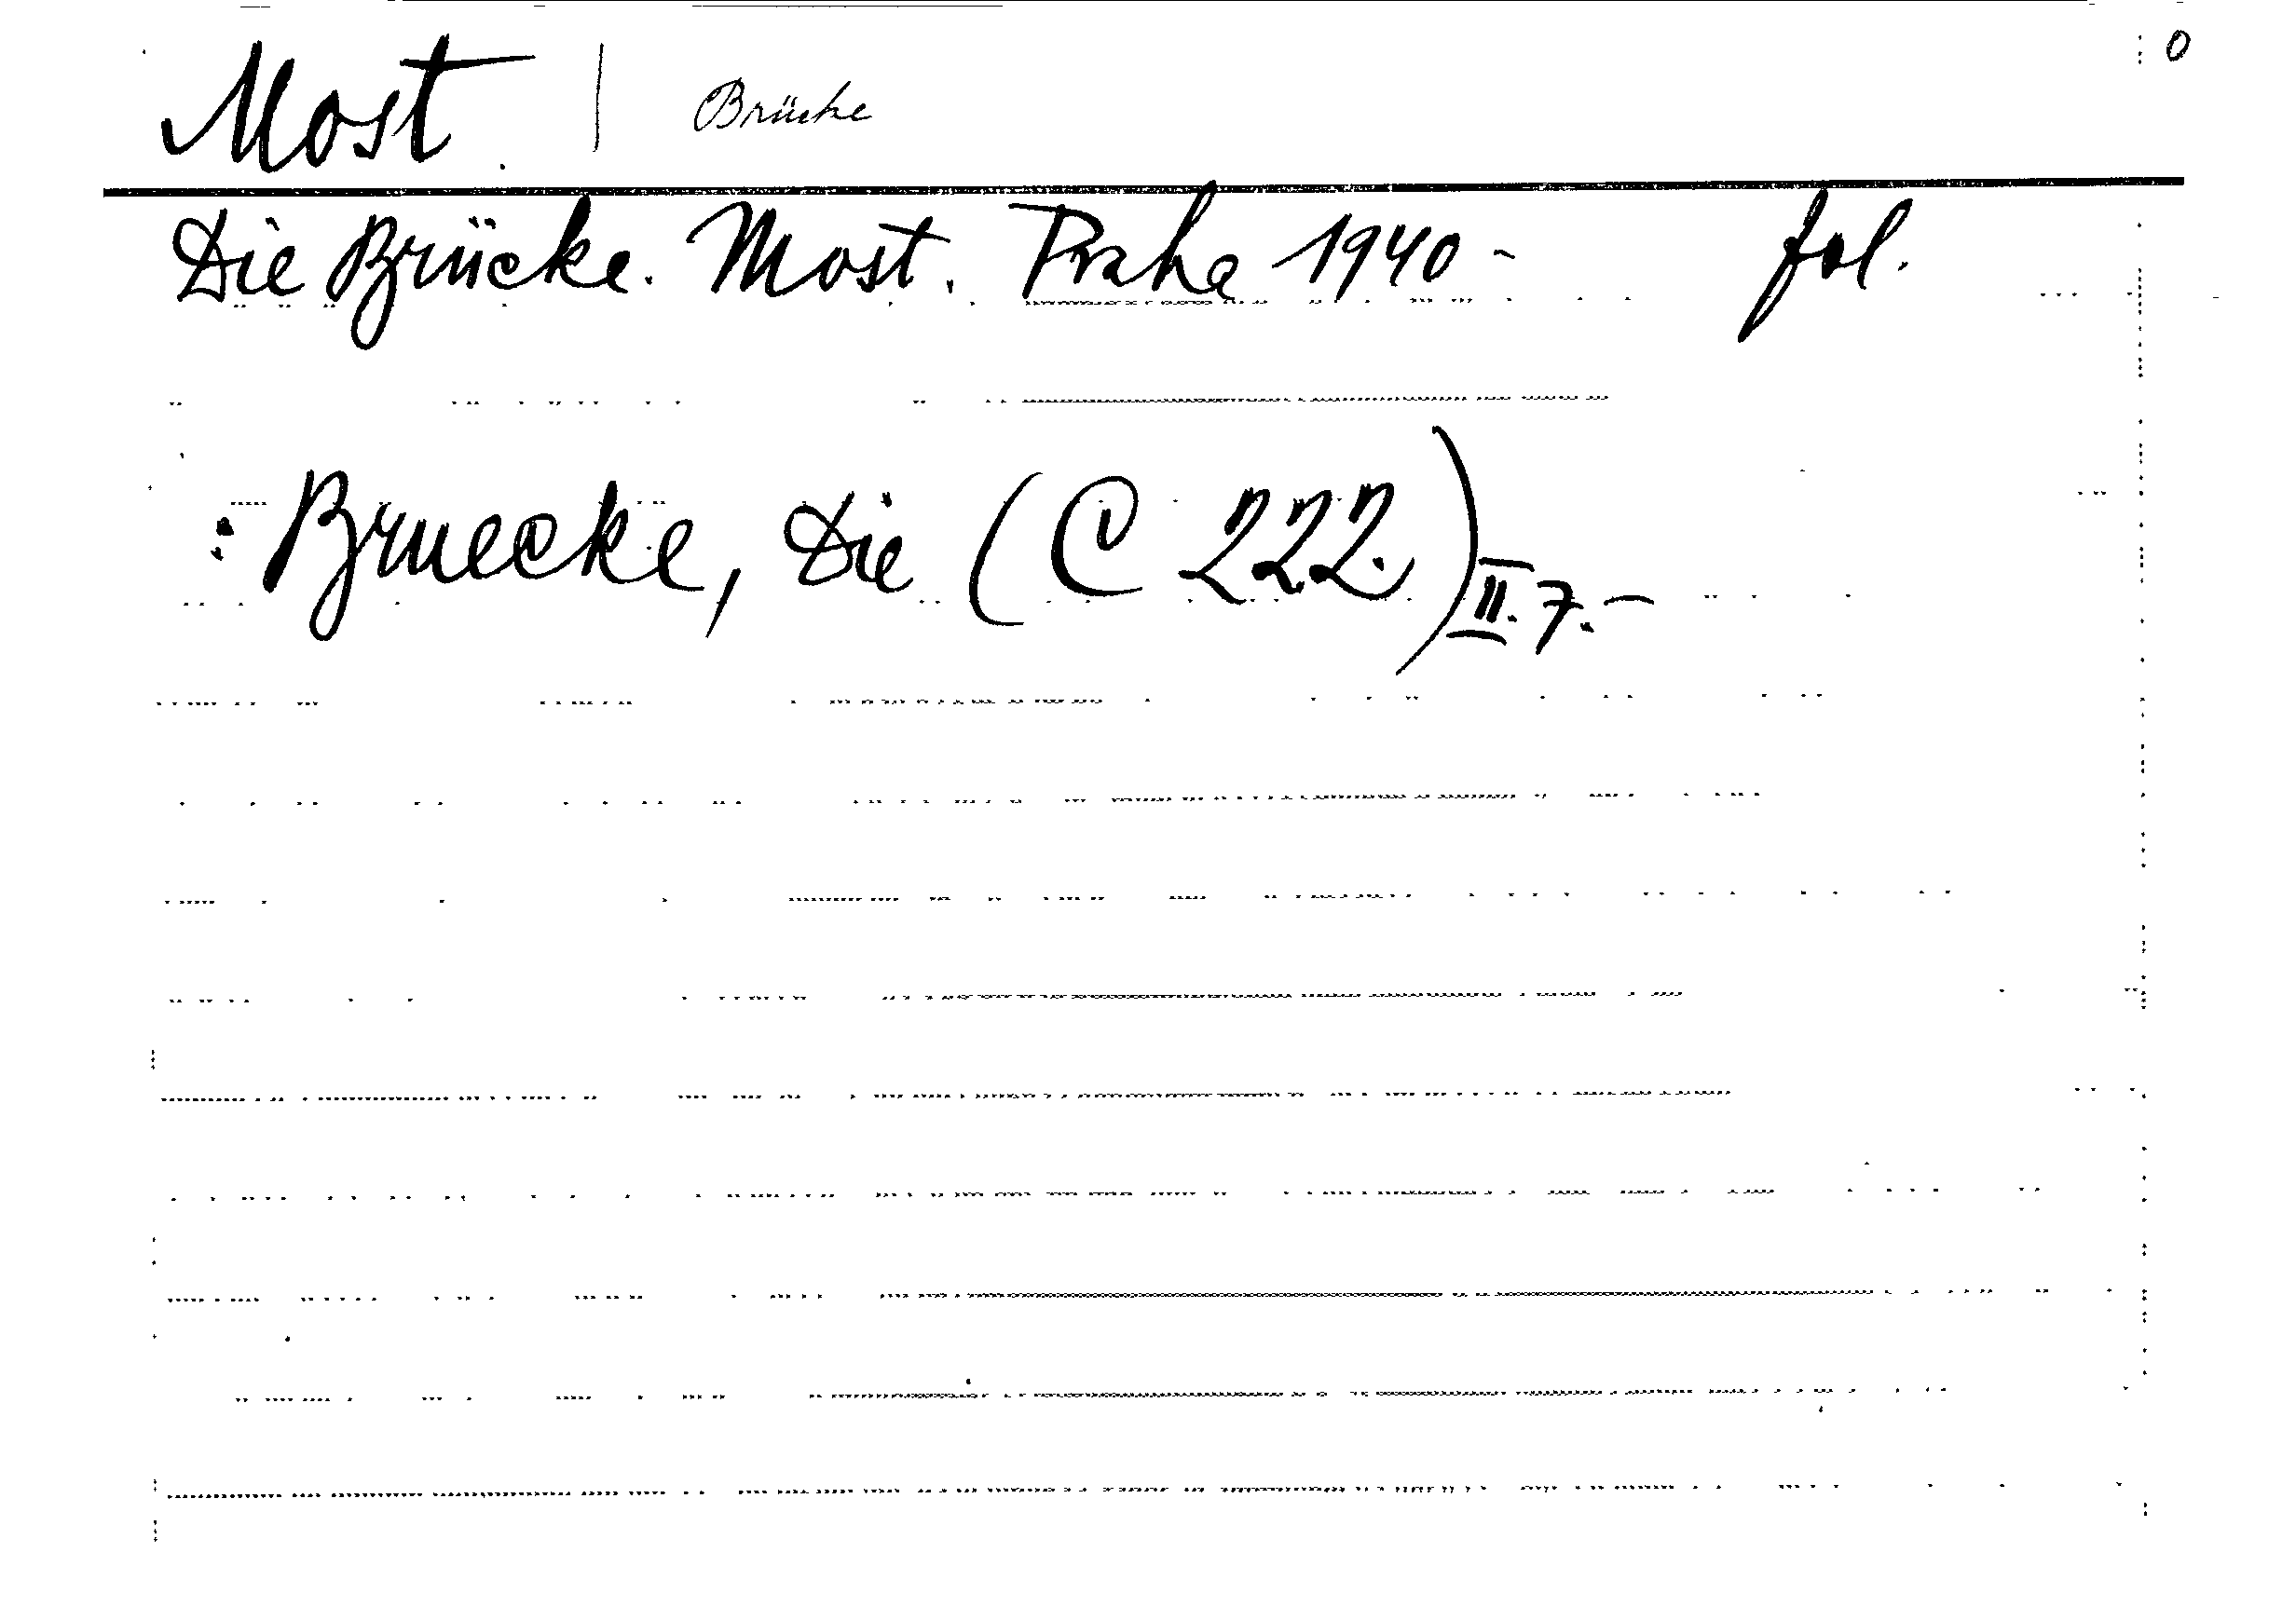 Most | Brücke 0
Die Brücke. Most. Praha 1940- fol.
: Bruecke, Die (C 222.) II. 7.-